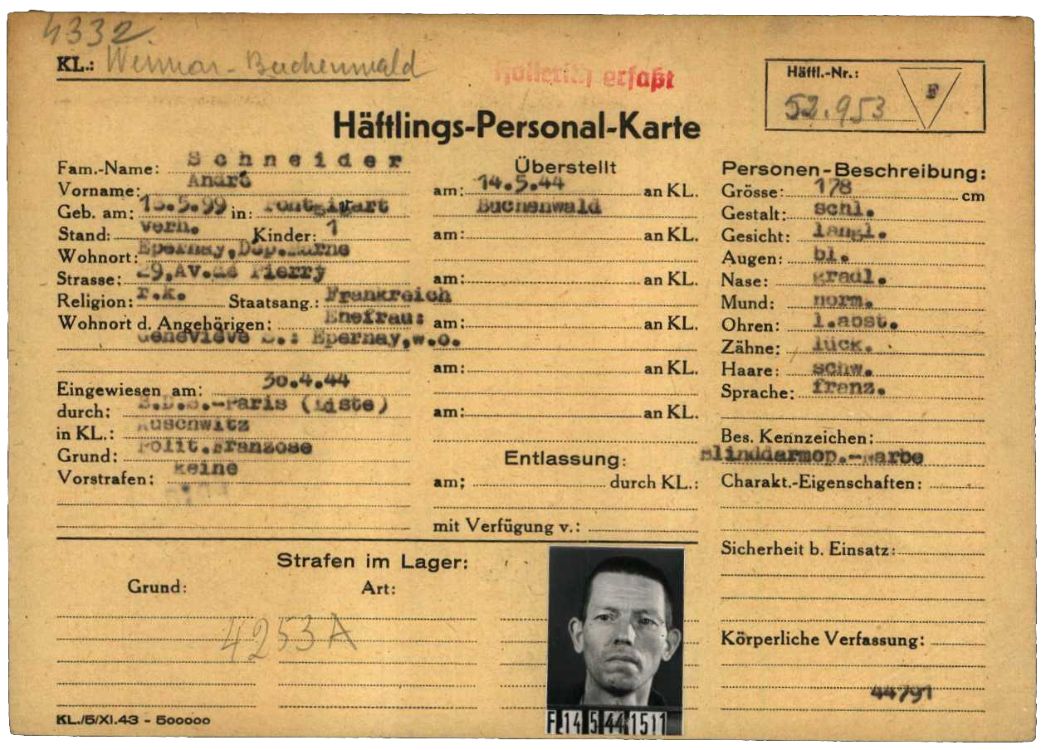 4332
KL.: Weimar-Buchenwald
Hollerith erfaßt
Häftl.-Nr.:
52.953
F
Häftlings-Personal-Karte
Fam.-Name: Schneider
Vorname: André
Geb. am: .5.99 in:
Stand: verh. Kinder: 1
Wohnort: Epernay, Dep.Marne
Strasse: 29, Av.de Pierry
Religion: r.k. Staatsang.: Frankreich
Wohnort d. Angehörigen: Ehefrau:
Geneviève S.: Epernay, w.o.
Eingewiesen am: 30.4.44
durch: B.D.S.-Paris (Liste)
in KL.: Auschwitz
Grund: Polit.Franzose
Vorstrafen: keine
Überstellt
am: 14.5.44 an KL.
Buchenwald
am: an KL.
am: an KL.
am: an KL.
am: an KL.
am: an KL.
Entlassung:
am; durch KL.:
mit Verfügung v.:
Personen-Beschreibung:
Grösse: 178 cm
Gestalt: schl.
Gesicht: längl.
Augen: bl.
Nase: gradl.
Mund: norm.
Ohren: l.abst.
Zähne: lück.
Haare: schw.
Sprache: franz.
Bes. Kennzeichen:
Blinddarmop.-Narbe
Charakt.-Eigenschaften:
Sicherheit b. Einsatz:
Körperliche Verfassung:
44791
Strafen im Lager:
Grund: Art:
4253A
F 14 5 44 1511
KL./5/XI.43 - 500000